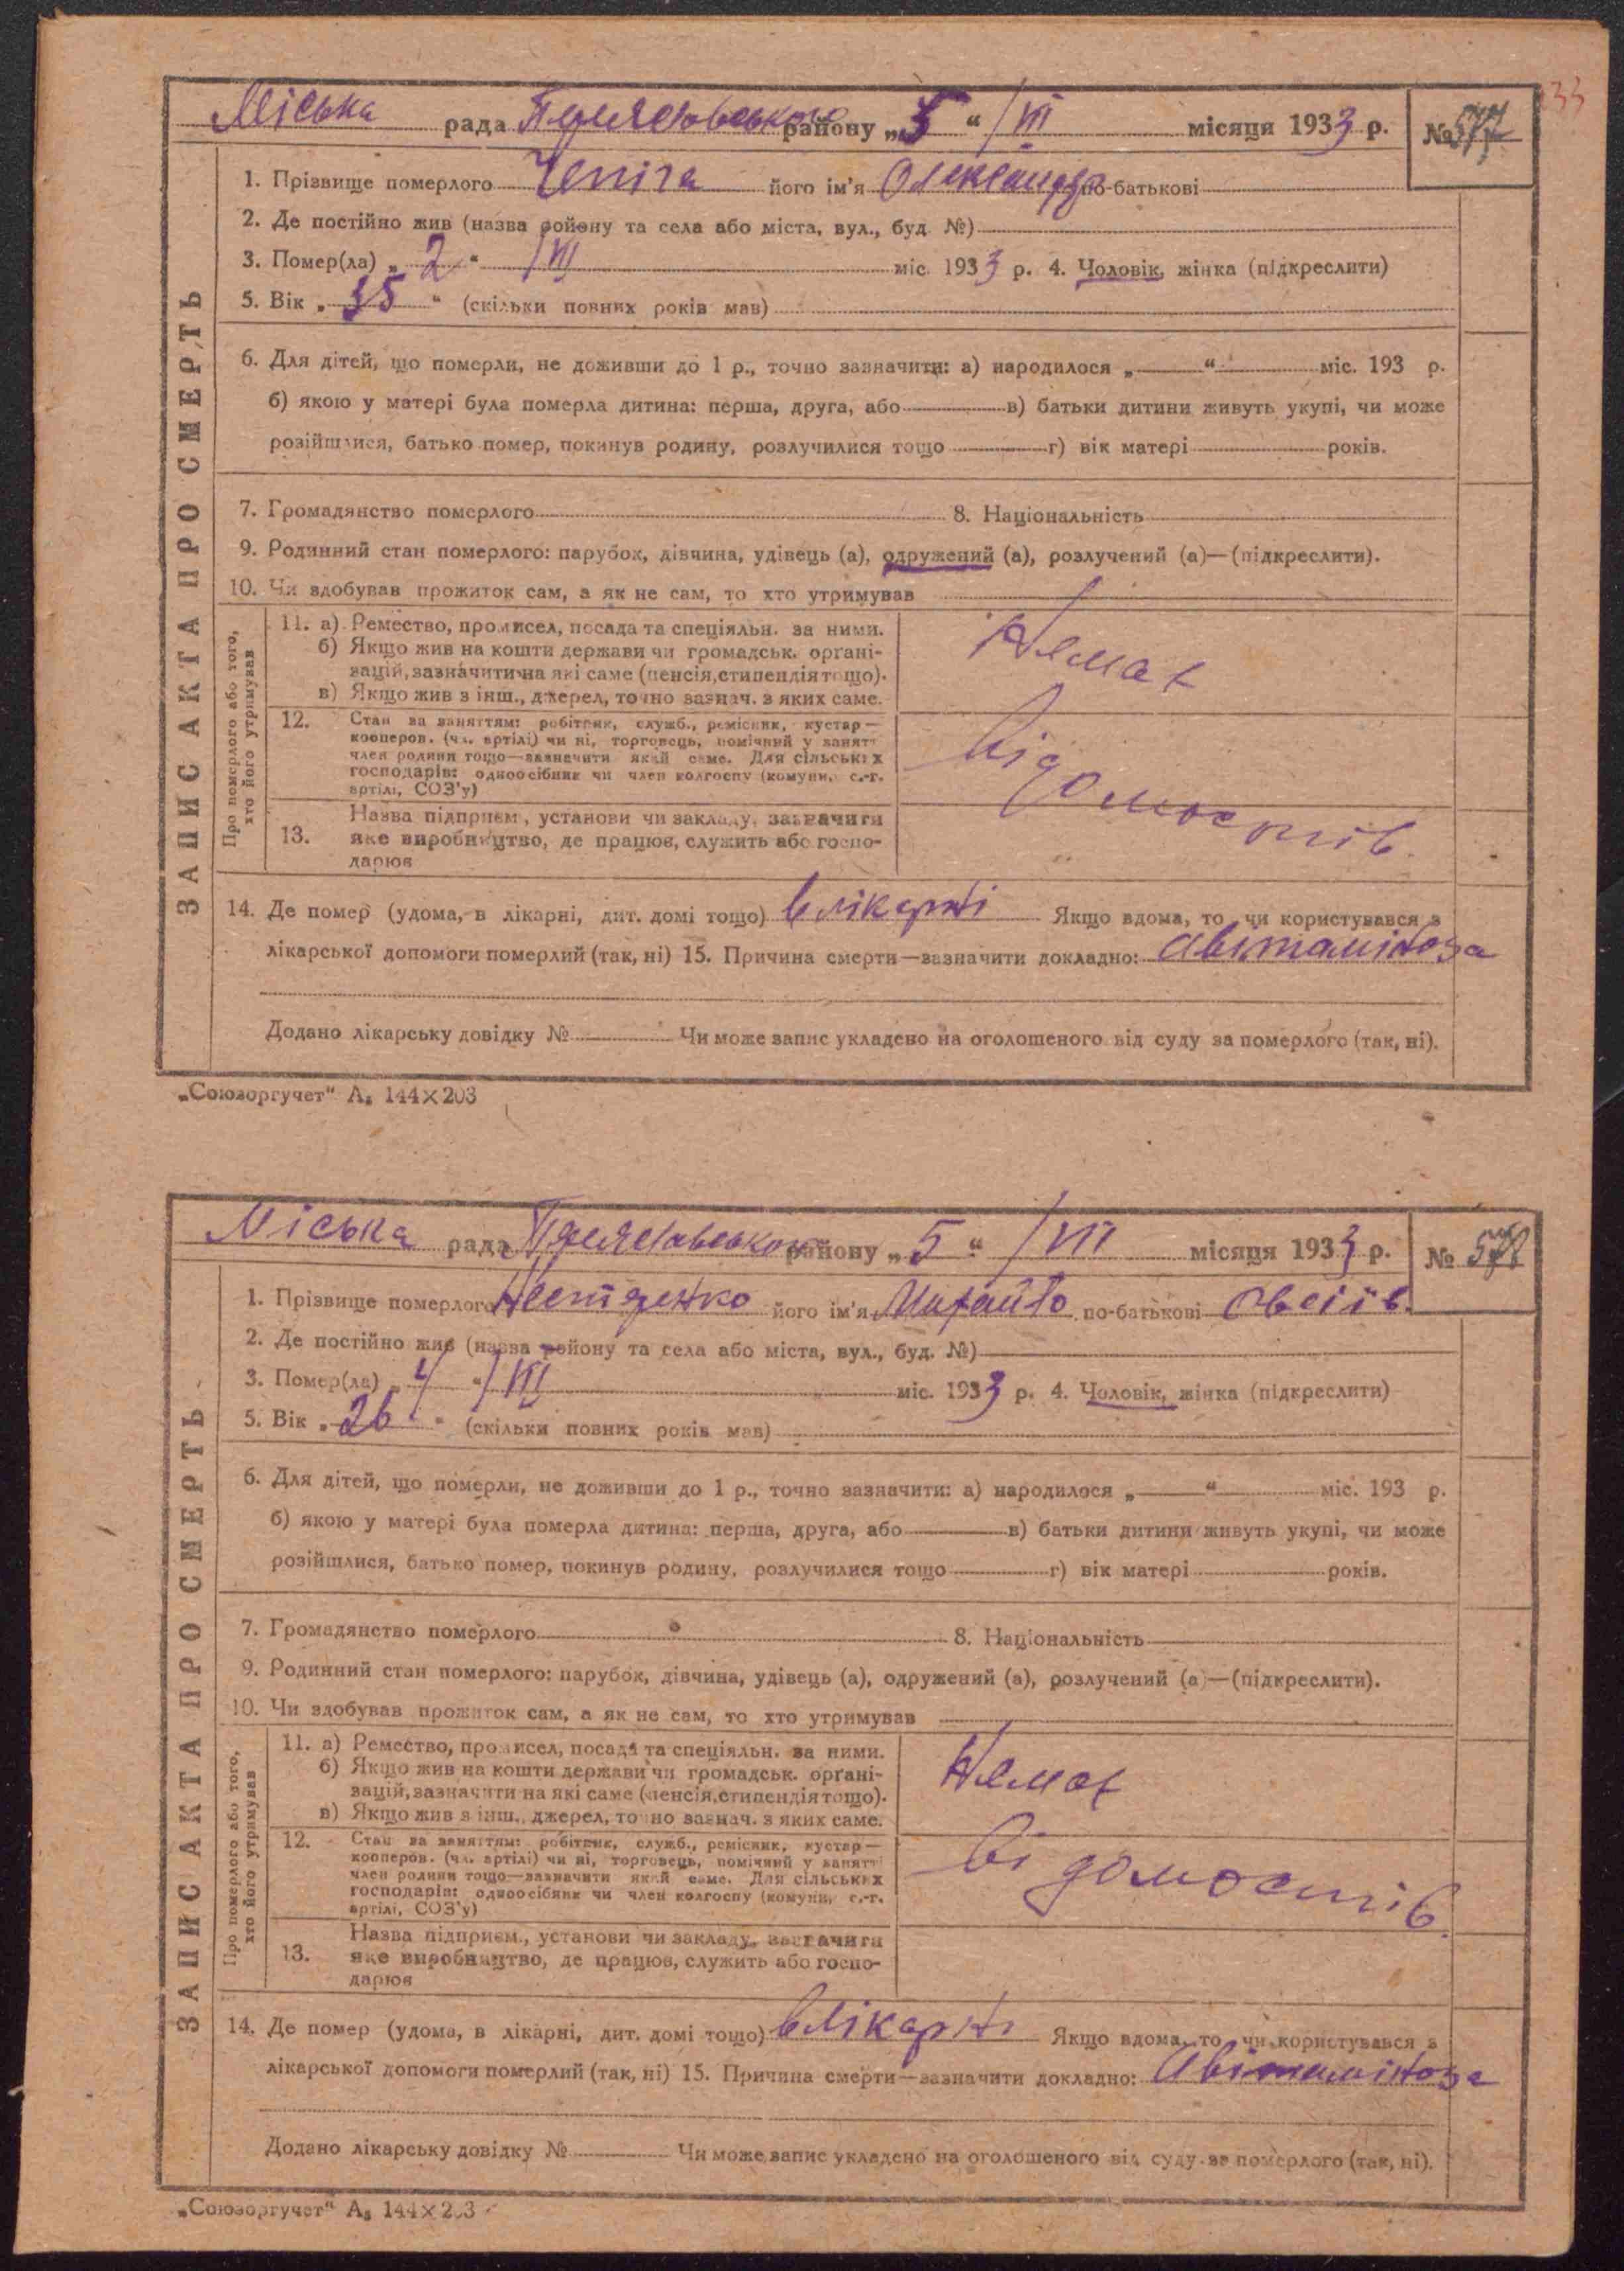 133
Міська рада Переяславського району „5“ /VII місяця 1933 р. № 577
ЗАПИС АКТА ПРО СМЕРТЬ
1. Прізвище померлого Чепіга його ім'я Олександр по-батькові
2. Де постійно жив (назва району та села або міста, вул., буд. №)
3. Помер(ла) „2“ /VII міс. 1933 р. 4. Чоловік, жінка (підкреслити)
5. Вік „35“ (скільки повних років мав)
6. Для дітей, що померли, не доживши до 1 р., точно зазначити: а) народилося „ “ міс. 193 р.
б) якою у матері була померла дитина: перша, друга, або в) батьки дитини живуть укупі, чи може
розійшлися, батько помер, покинув родину, розлучилися тощо г) вік матері років.
7. Громадянство померлого 8. Національність
9. Родинний стан померлого: парубок, дівчина, удівець (а), одружений (а), розлучений (а)—(підкреслити).
10. Чи здобував прожиток сам, а як не сам, то хто утримував
Про померлого або того,
хто його утримував
11. а) Ремество, промисел, посада та спеціяльн. за ними.
б) Якщо жив на кошти держави чи громадськ. органі-
зацій, зазначити на які саме (пенсія, стипендія тощо).
в) Якщо жив з інш., джерел, точно зазнач. з яких саме.
Немає
12. Стан за заняттям: робітник, служб., ремісник, кустар—
кооперов. (чл. артілі) чи ні, торговець, помічний у занятт
член родини тощо—зазначити який саме. Для сільських
господарів: одноосібник чи член колгоспу (комуни, с.-г.
артілі, СОЗ'у)
відомостів.
13. Назва підприєм., установи чи закладу, зазначити
яке виробництво, де працює, служить або госпо-
дарює
14. Де помер (удома, в лікарні, дит. домі тощо) в лікарні Якщо вдома, то чи користувався з
лікарської допомоги померлий (так, ні) 15. Причина смерти—зазначити докладно: Авітаміноза
Додано лікарську довідку № Чи може запис укладено на оголошеного від суду за померлого (так, ні).
„Союзоргучет“ А₅ 144×203
Міська рада Переяславського району „5“ /VII місяця 1933 р. № 578
ЗАПИС АКТА ПРО СМЕРТЬ
1. Прізвище померлого Нестеренко його ім'я Михайло по-батькові Овсіїв.
2. Де постійно жив (назва району та села або міста, вул., буд. №)
3. Помер(ла) „4“ /VII міс. 1933 р. 4. Чоловік, жінка (підкреслити)
5. Вік „26“ (скільки повних років мав)
6. Для дітей, що померли, не доживши до 1 р., точно зазначити: а) народилося „ “ міс. 193 р.
б) якою у матері була померла дитина: перша, друга, або в) батьки дитини живуть укупі, чи може
розійшлися, батько помер, покинув родину, розлучилися тощо г) вік матері років.
7. Громадянство померлого 8. Національність
9. Родинний стан померлого: парубок, дівчина, удівець (а), одружений (а), розлучений (а)—(підкреслити).
10. Чи здобував прожиток сам, а як не сам, то хто утримував
Про померлого або того,
хто його утримував
11. а) Ремество, промисел, посада та спеціяльн. за ними.
б) Якщо жив на кошти держави чи громадськ. органі-
зацій, зазначити на які саме (пенсія, стипендія тощо).
в) Якщо жив з інш., джерел, точно зазнач. з яких саме.
Немає
12. Стан за заняттям: робітник, служб., ремісник, кустар—
кооперов. (чл. артілі) чи ні, торговець, помічний у занятт
член родини тощо—зазначити який саме. Для сільських
господарів: одноосібник чи член колгоспу (комуни, с.-г.
артілі, СОЗ'у)
відомостів.
13. Назва підприєм., установи чи закладу, зазначити
яке виробництво, де працює, служить або госпо-
дарює
14. Де помер (удома, в лікарні, дит. домі тощо) в лікарні Якщо вдома, то чи користувався з
лікарської допомоги померлий (так, ні) 15. Причина смерти—зазначити докладно: Авітаміноза
Додано лікарську довідку № Чи може запис укладено на оголошеного від суду за померлого (так, ні).
„Союзоргучет“ А₅ 144×203